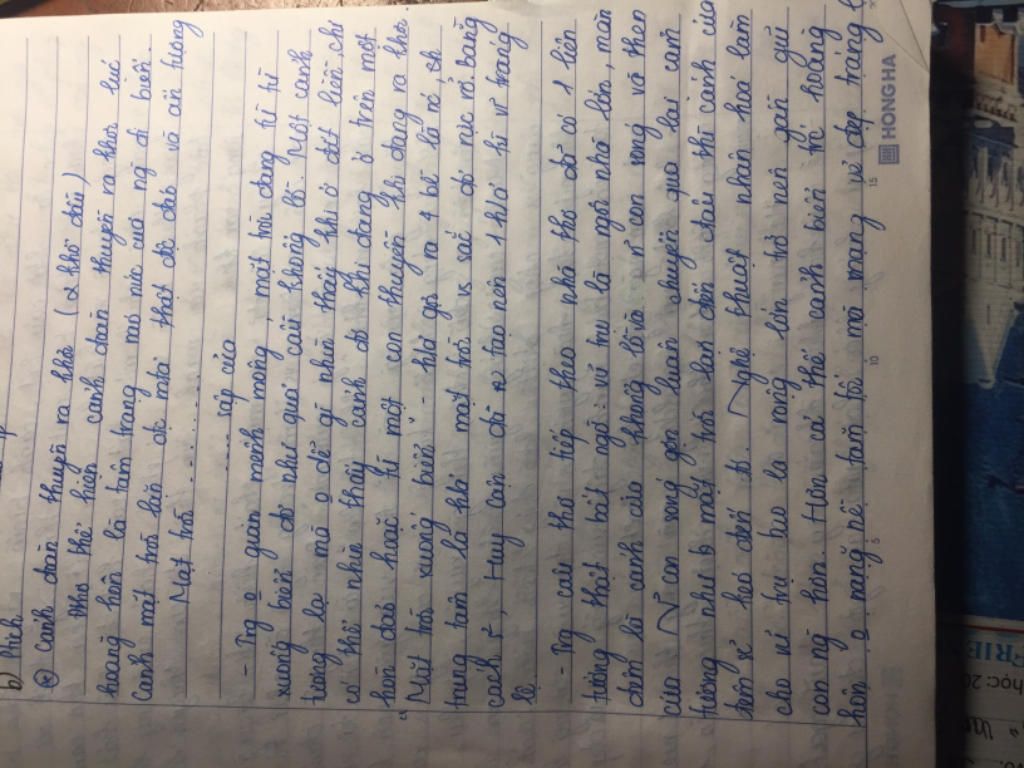 g) Thích
* Cảnh đoàn thuyền ra khơi (2 khổ đầu)
Khổ thơ thể hiện cảnh đoàn thuyền ra khơi lúc
hoàng hôn là tâm trạng náo nức của ng đi biển.
Cảnh mặt trời lặn đc mtả thật độ đáo và ấn tượng
Mặt trời ............
....... sập cửa
- Trg o gian mênh mông mặt trời đang từ từ
xuống biển đỏ như quả cầu khổng lồ. Một cảnh
tượng lạ mà o dễ gì nhìn thấy khi ở đất liền, chỉ
có thể nhìn thấy cảnh đó khi đang ở trên một
hòn đảo hoặc từ một con thuyền khi đang ra khơi
"Mặt trời xuống biển" - khơi gợi ra 4 bề là nc, ở
trung tâm là khối mặt trời sắc đỏ rực rỡ bằng
cách, Huy Cận đã tạo nên 1 khổ vĩ tráng
lệ
- Trg câu thơ tiếp theo nhà thơ đã có 1 liên
tưởng thật bất ngờ: vũ trụ là ngôi nhà lớn, màn
đêm là cánh cửa khổng lồ và con sóng và then
cửa con sóng gợn luân chuyển qua lại
tưởng như mặt trời lặn đến đâu thì cánh cửa
đêm sẽ kéo đến đó. Nghệ thuật nhân hoá làm
cho vũ trụ bao la rộng lớn trở nên gần gũi
con ng hơn. Hơn cả thế cảnh biển hoàng
hôn o mang nét tăm tối mà mang vẻ đẹp tráng
HONG HA
5
10
15
HONG H
RIE
học 20